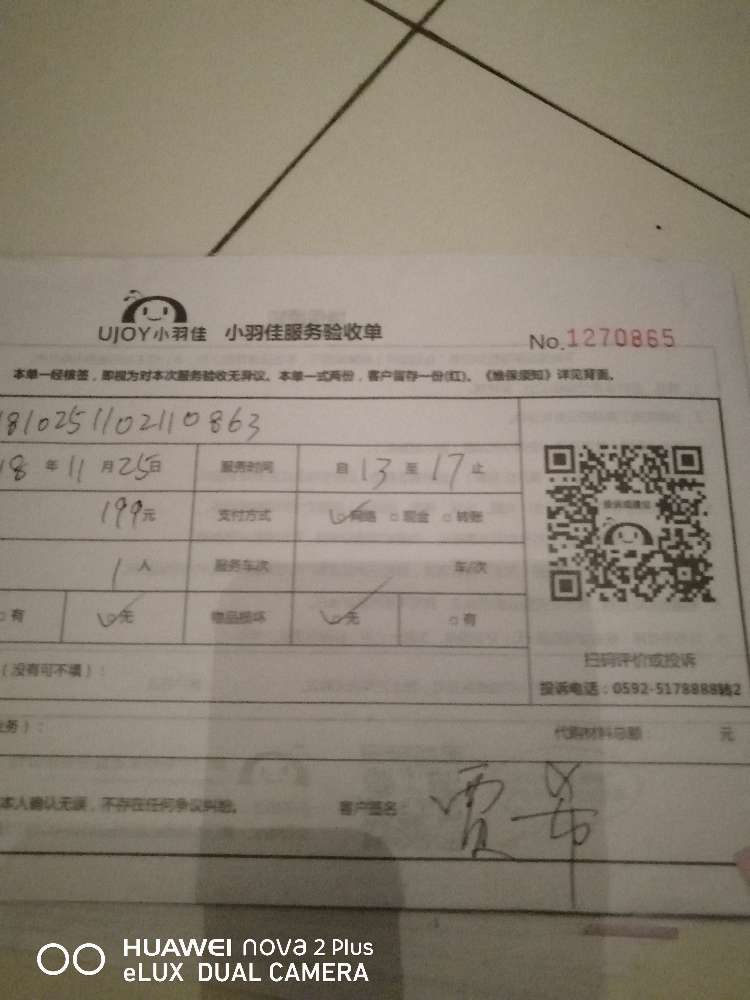 UJOY小羽佳 小羽佳服务验收单 No.1270865
本单一经核签，即视为对本次服务验收无异议。本单一式两份，客户留存一份(红)。《维保须知》详见背面。
181025110211 0863
18 年 11 月 25 日 服务时间 自 13 至 17 止
199元 支付方式 网络 现金 转账
1 人 服务车次 车/次
有 无 物品损坏 无 有
投诉或建议
扫码评价或投诉
（没有可不填）：
投诉电话：0592-5178888转2
业务）： 代购材料总额 元
本人确认无误，不存在任何争议纠纷。 客户签名： 贾希
HUAWEI nova 2 Plus
eLUX DUAL CAMERA